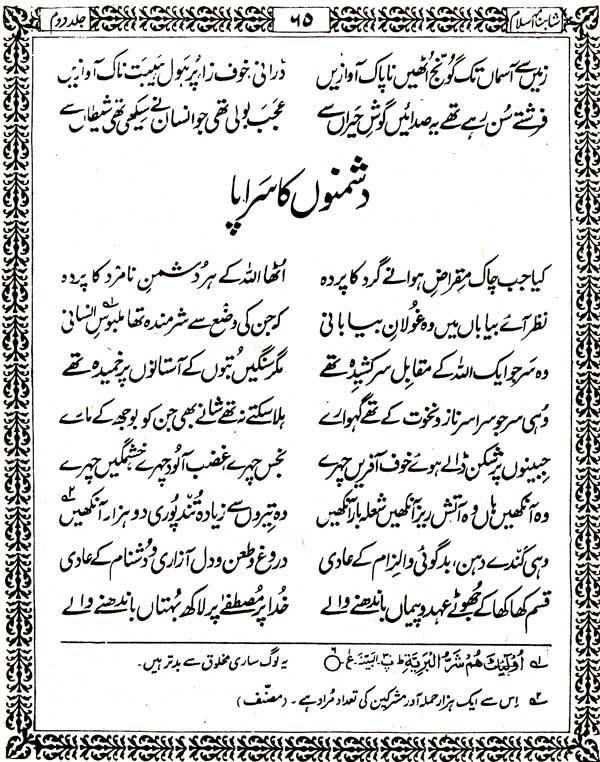 شاہنامہ اسلام ۶۵ جلد دوم
زمیں سے آسماں تک گونج اُٹھیں ناپاک آوازیں ڈرانی خوف زا پُرہول ہیبت ناک آوازیں
فرشتے سُن رہے تھے یہ صدائیں گوشِ حیراں سے عجب بولی تھی جو انسان نے سیکھی تھی شیطاں سے
دشمنوں کا سَراپا
کیا جب چاک مقراضِ ہوا نے گرد کا پردہ اُٹھا اللہ کے ہر دُشمنِ نامرد کا پردہ
نظر آئے بیاباں میں وہ غُولانِ بیابانی کہ جن کی وضع سے شرمندہ تھا ملبوسِ انسانی
وہ سَر جو ایک اللہ کے مقابل سرکشیدہ تھے مگر سنگیں بُتوں کے آستانوں پر خمیدہ تھے
وُہی سر جو سراسر ناز و نخوت کے تھے گہوارے ہلا سکتے نہ تھے شانے بھی جن کو بوجھ کے مارے
جبینوں پر شکن ڈالے ہوئے خوف آفریں چہرے نجس چہرے غضب آلود چہرے خشمگیں چہرے
وہ آنکھیں ہاں وہ آتش ریز آنکھیں شعلہ بار آنکھیں وہ تیروں سے زیادہ تُند پوری دو ہزار آنکھیں ۲؎
وہی گندے دہن، بدگوئی و الزام کے عادی دروغ و طعن و دل آزاری و دُشنام کے عادی
قسم کھا کھا کے جُھوٹے عہد و پیماں باندھنے والے خُدا پر مُصطفےٰ پر لاکھ بُہتاں باندھنے والے
۱؎ اُولٰٓئِکَ ھُمْ شَرُّ الْبَرِیَّۃِ ط پ البینۃ ع یہ لوگ ساری مخلوق سے بدتر ہیں۔
۲؎ اِس سے ایک ہزار حملہ آور مشرکین کی تعداد مُراد ہے۔ (مصنّف)